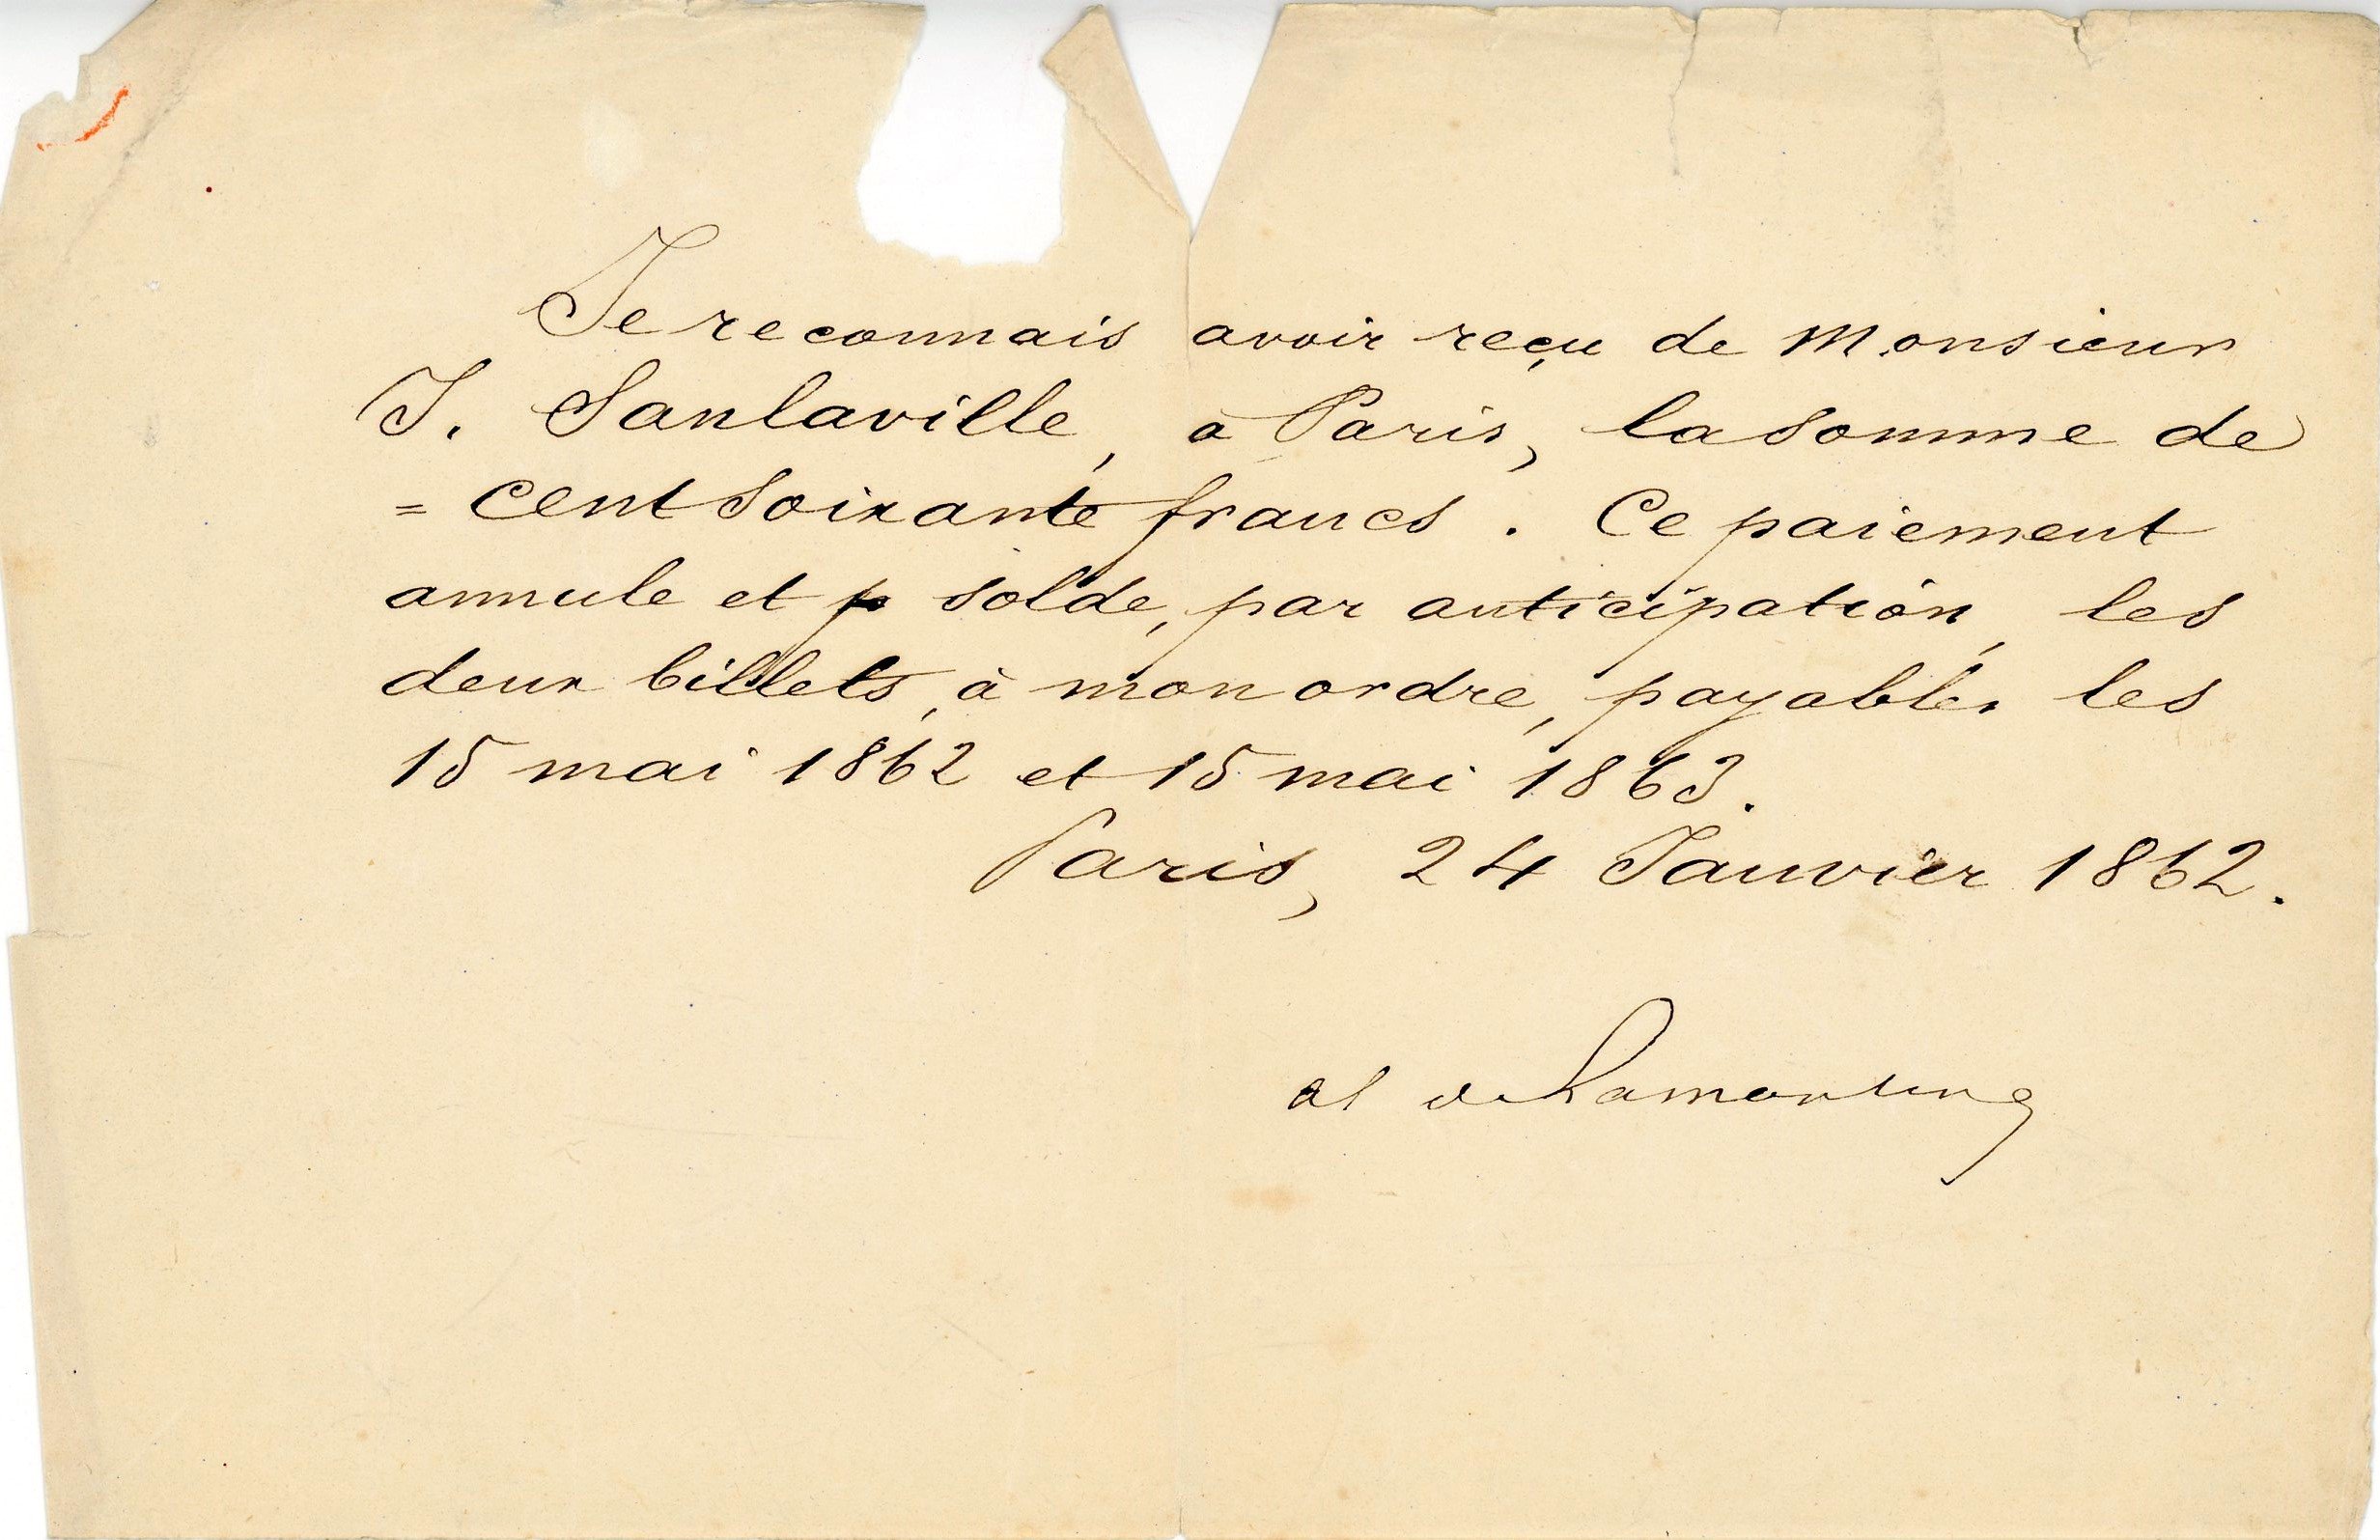 Je reconnais avoir reçu de Monsieur
J. Sanlaville, à Paris, la somme de
= cent soixante francs. Ce paiement
annule et p solde, par anticipation, les
deux billets, à mon ordre, payables les
15 mai 1862 et 15 mai 1863.
Paris, 24 Janvier 1862.
al de Lamartine